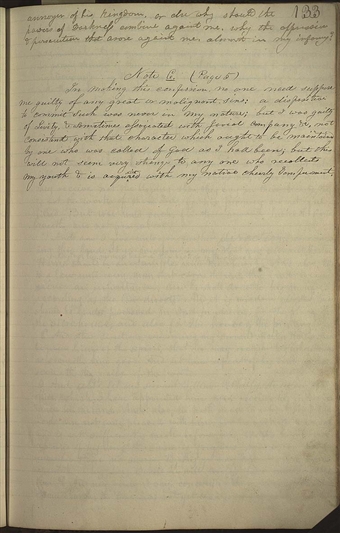 133
annoyer of his kingdom, or else why should the
power of darkness combine against me, why the oppression
& persecution that arose against me, almost in my infancy?
Note C. (Page 5)
In making this confession, no one need suppose
me guilty of any great or malignant sins: a disposition
to commit such was never in my nature; but I was guilty
of levity, & sometimes associated with jovial company &c, not
consistant with that character which ought to be maintained
by one who was called of God as I had been; but this
will not seem very strange to any one who recollects
my youth & is acquainted with my native cheerly temperament.